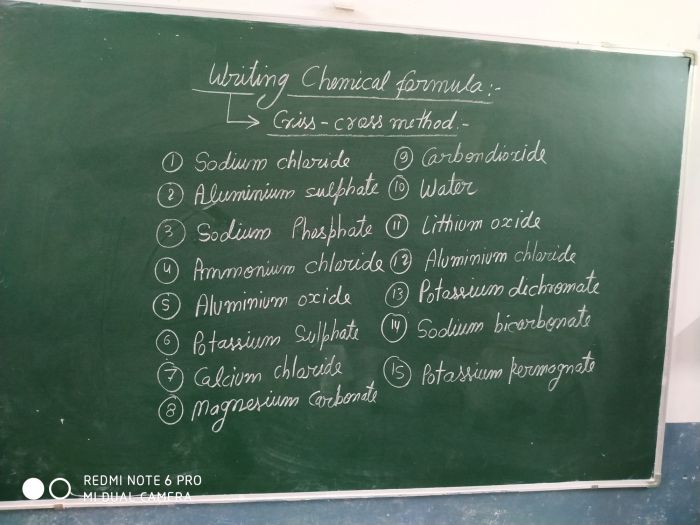 Writing Chemical formula:-
Criss-cross method.-
① Sodium chloride
② Aluminium sulphate
③ Sodium Phosphate
④ Ammonium chloride
⑤ Aluminium oxide
⑥ Potassium Sulphate
⑦ Calcium chloride
⑧ Magnesium Carbonate
⑨ Carbondioxide
⑩ Water
⑪ Lithium oxide
⑫ Aluminium chloride
⑬ Potassium dechromate
⑭ Sodium bicarbonate
⑮ Potassium permagnate
REDMI NOTE 6 PRO
MI DUAL CAMERA